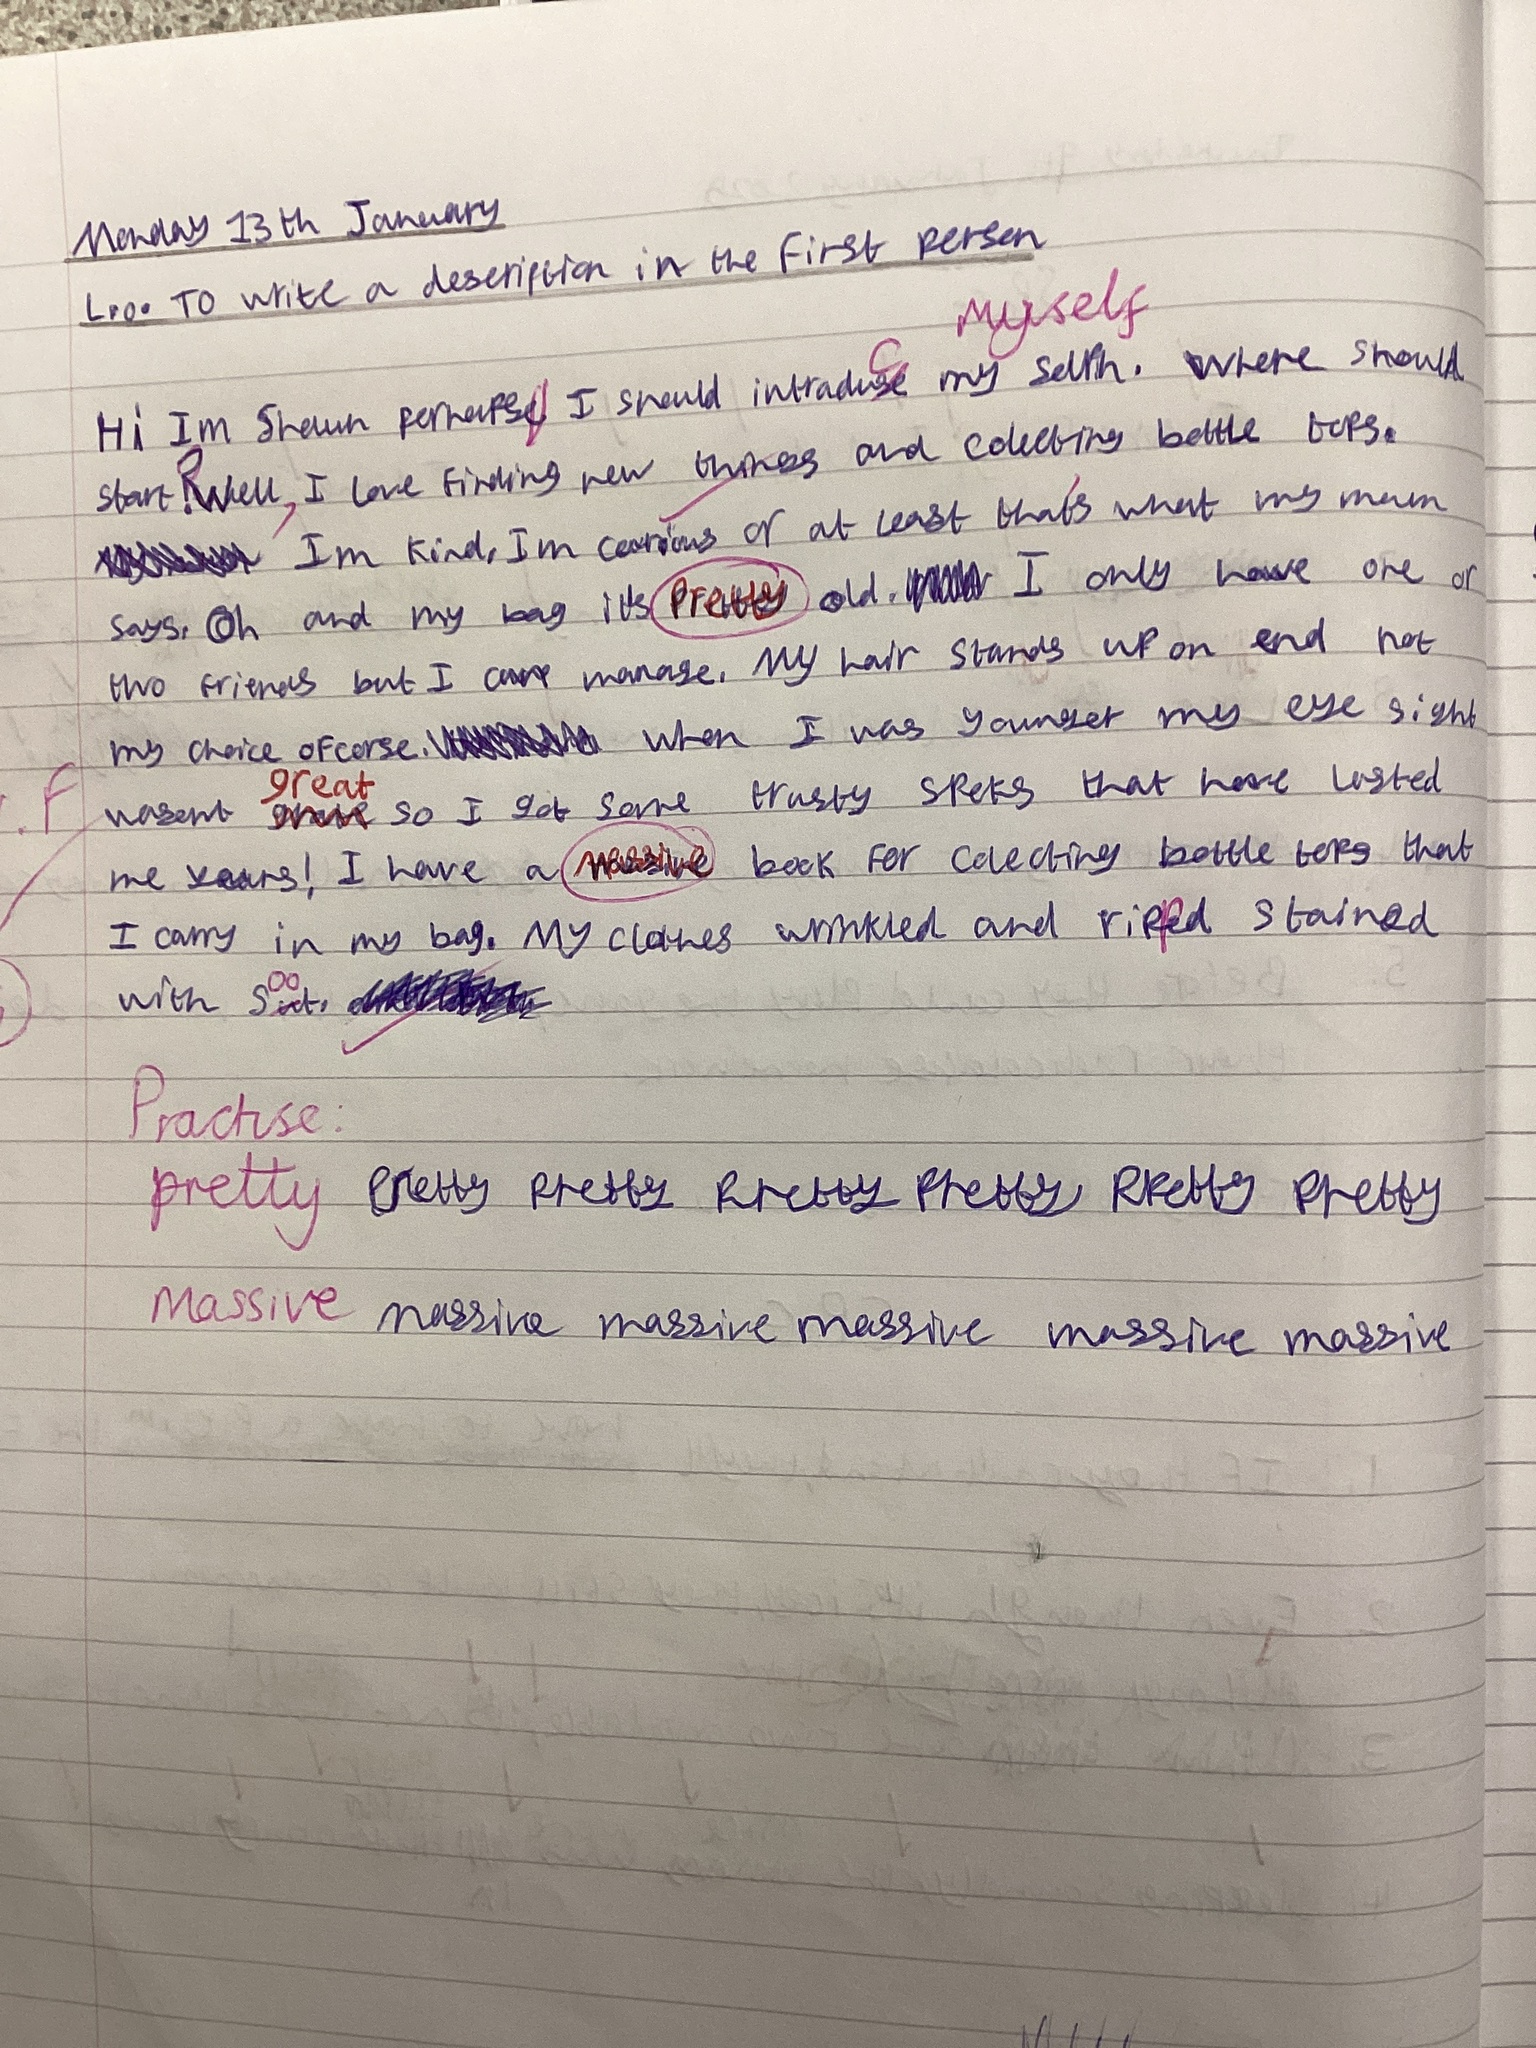 Monday 13th January
L.o. To write a description in the first person
myself
c
Hi Im Shawn perhaps I should intraduse my selfh. Where should
start? Well, I love finding new things and colecting bottle tops.
Im kind, Im curious or at least that's what my mum
says. Oh and my bag it's pretty old. I only have one or
two friends but I can manage. My hair stands up on end not
my choice ofcorse. when I was younger my eye sight
great
wasent grate so I got some trusty speks that have lasted
me years! I have a massive book for colecting bottle tops that
I carry in my bag. My clothes wrinkled and ripped stained
oo
with sut.
Practise:
pretty pretty pretty pretty pretty pretty pretty
massive massive massive massive massive massive